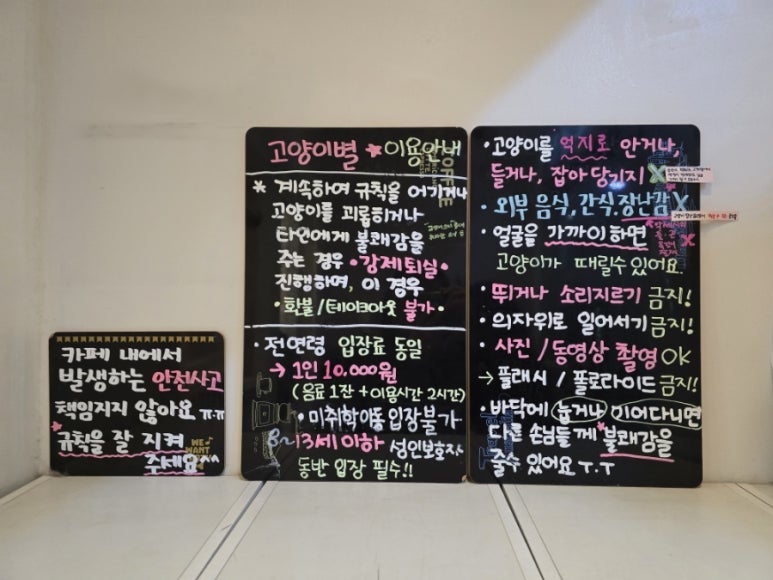 카페 내에서
발생하는 안전사고
책임지지 않아요 ㅠㅠ
*규칙을 잘 지켜
주세요^^
WE
WANT
고양이별 * 이용안내
* 계속하여 규칙을 어기거나
고양이를 괴롭히거나
타인에게 불쾌감을
주는 경우 •강제퇴실•
진행하며, 이 경우
• 환불/테이크아웃 불가 •
• 전연령 입장료 동일
→ 1인 10.000원
(음료 1잔 + 이용시간 2시간)
• 미취학아동 입장불가
8~13세 이하 성인보호자
동반 입장 필수!!
• 고양이를 억지로 안거나,
들거나, 잡아 당기지 X
• 외부 음식, 간식, 장난감 X
• 얼굴을 가까이하면
고양이가 때릴수 있어요.
• 뛰거나 소리지르기 금지!
• 의자위로 일어서기 금지!
• 사진 / 동영상 촬영 OK
→ 플래시 / 폴로라이드 금지!
• 바닥에 눕거나 기어다니면
다른 손님들께 *불쾌감을
줄수 있어요 T.T